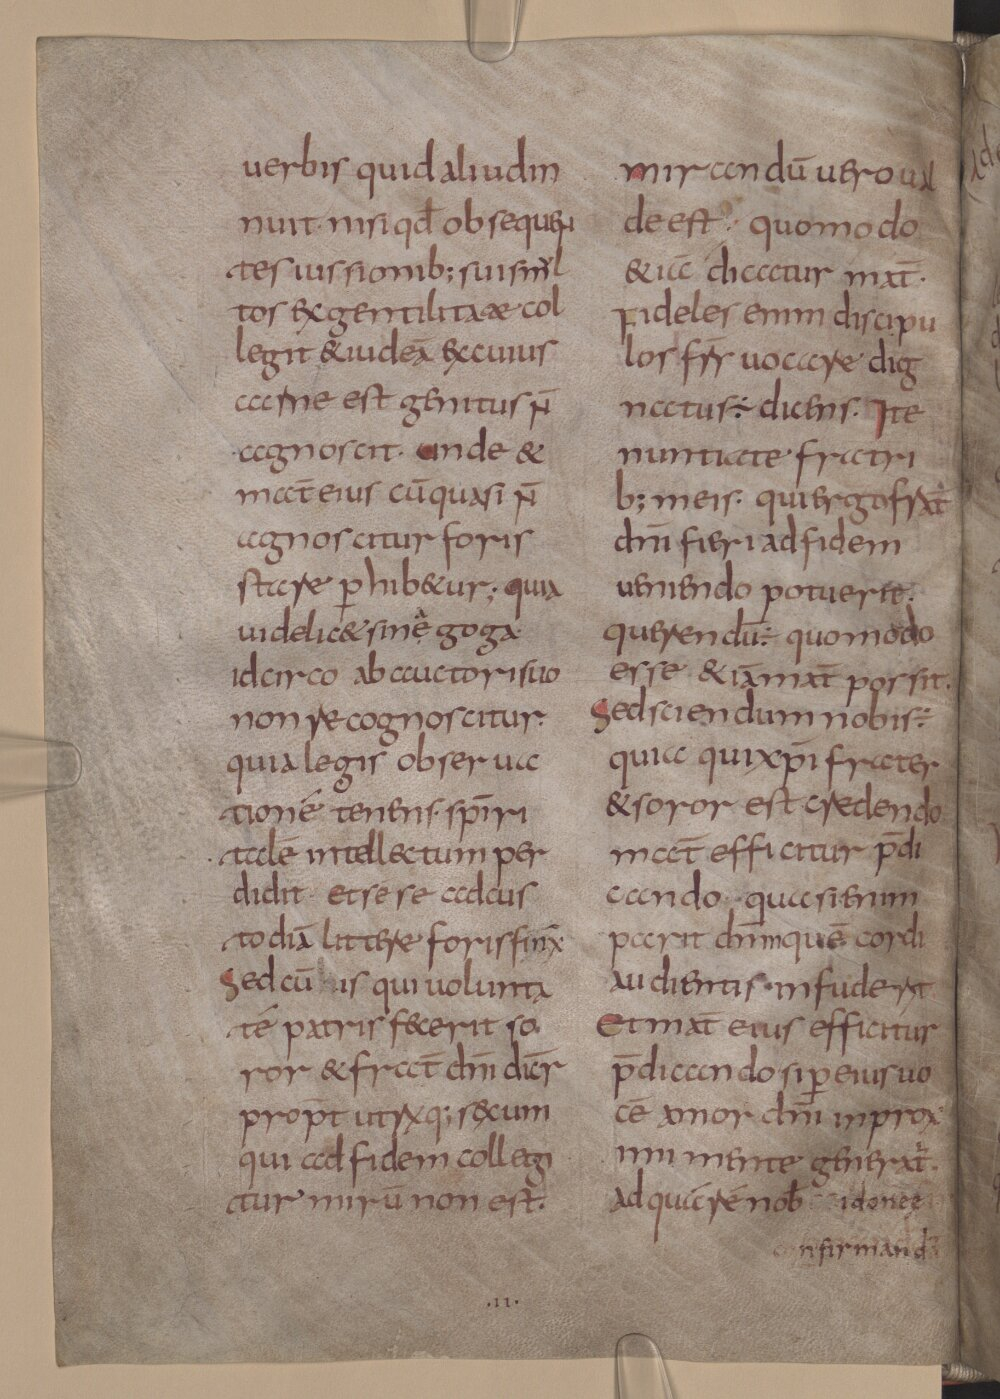 uerbis quid aliud in
nuit nisi qđ obsequen
tes iussionib; suis mul
tos ex gentilitate col
legit & iudeā ex cuius
carne est genitus ñ
agnoscit. unde &
mat̄ eius cū quasi ñ
agnoscitur foris
stare p̱hib&ur; quia
uidelic& sinagoga
idcirco ab auctori suo
non recognoscitur.
quia legis obserua
tionē tenens. sp̄iri
talē intellectum per
didit et sese ad cus
todiā litterae foris finx̄
Sed cū is qui uolunta
tē patris fecerit so
ror & frat̄ dn̄i dicr̄
prop̄t utrxq; sexum
qui ad fidem collegi
tur mirū non est.
mirandū uero ual
de est. quomodo
&iā dicatur mat̄.
Fideles enim discipu
los fr̄s uocare dig
natus: dicens. Ite
nuntiate fratri
b; meis. qui ergo frat̄
dn̄i fieri ad fidem
ueniendo potuerit.
querendū: quomodo
esse &iā mat̄ possit.
Sed sciendum nobis:
quia qui xp̄i frater
& soror est credendo
mat̄ efficitur p̄di
cando. quasi enim
parit dn̄m quē cordi
audientis infuderit
Et mat̄ eius efficitur
p̄dicando si p̱ eius uo
cē amor dn̄i in prox
imi mente generat̄.
ad quā rē nob̄ idonee
confirmandā
.11.